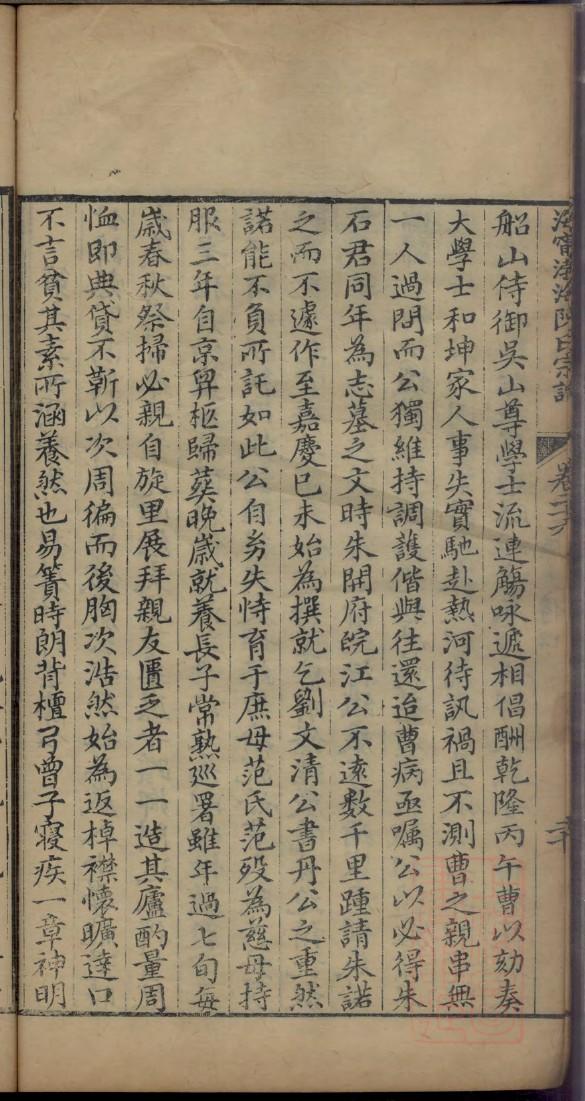 海寧渤海陳氏宗譜 卷二十六 二十
船山侍御吳山尊學士流連觴咏遞相倡酬乾隆丙午曹以劾奏
大學士和坤家人事失實馳赴熱河待訊禍且不測曹之親串無
一人過問而公獨維持調護偕與往還迨曹病亟囑公以必得朱
石君同年為志墓之文時朱開府皖江公不遠數千里踵請朱諾
之而不遽作至嘉慶巳未始為撰就乞劉文清公書丹公之重然
諾能不負所託如此公自㓜失恃育于庶母范氏范殁為慈母持
服三年自京舁柩歸葬晚歲就養長子常熟巡署雖年過七旬每
歲春秋祭掃必親自旋里展拜親友匱乏者一一造其廬酌量周
恤即典貸不靳以次周徧而後胸次浩然始為返棹襟懷曠達口
不言貧其素所涵養然也易簀時朗背檀弓曾子寢疾一章神明